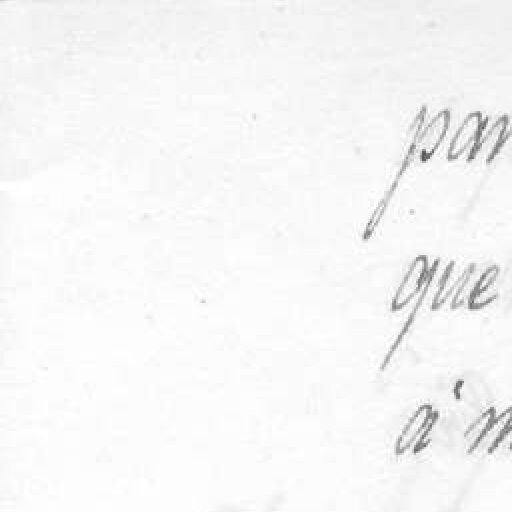 par
que
à m